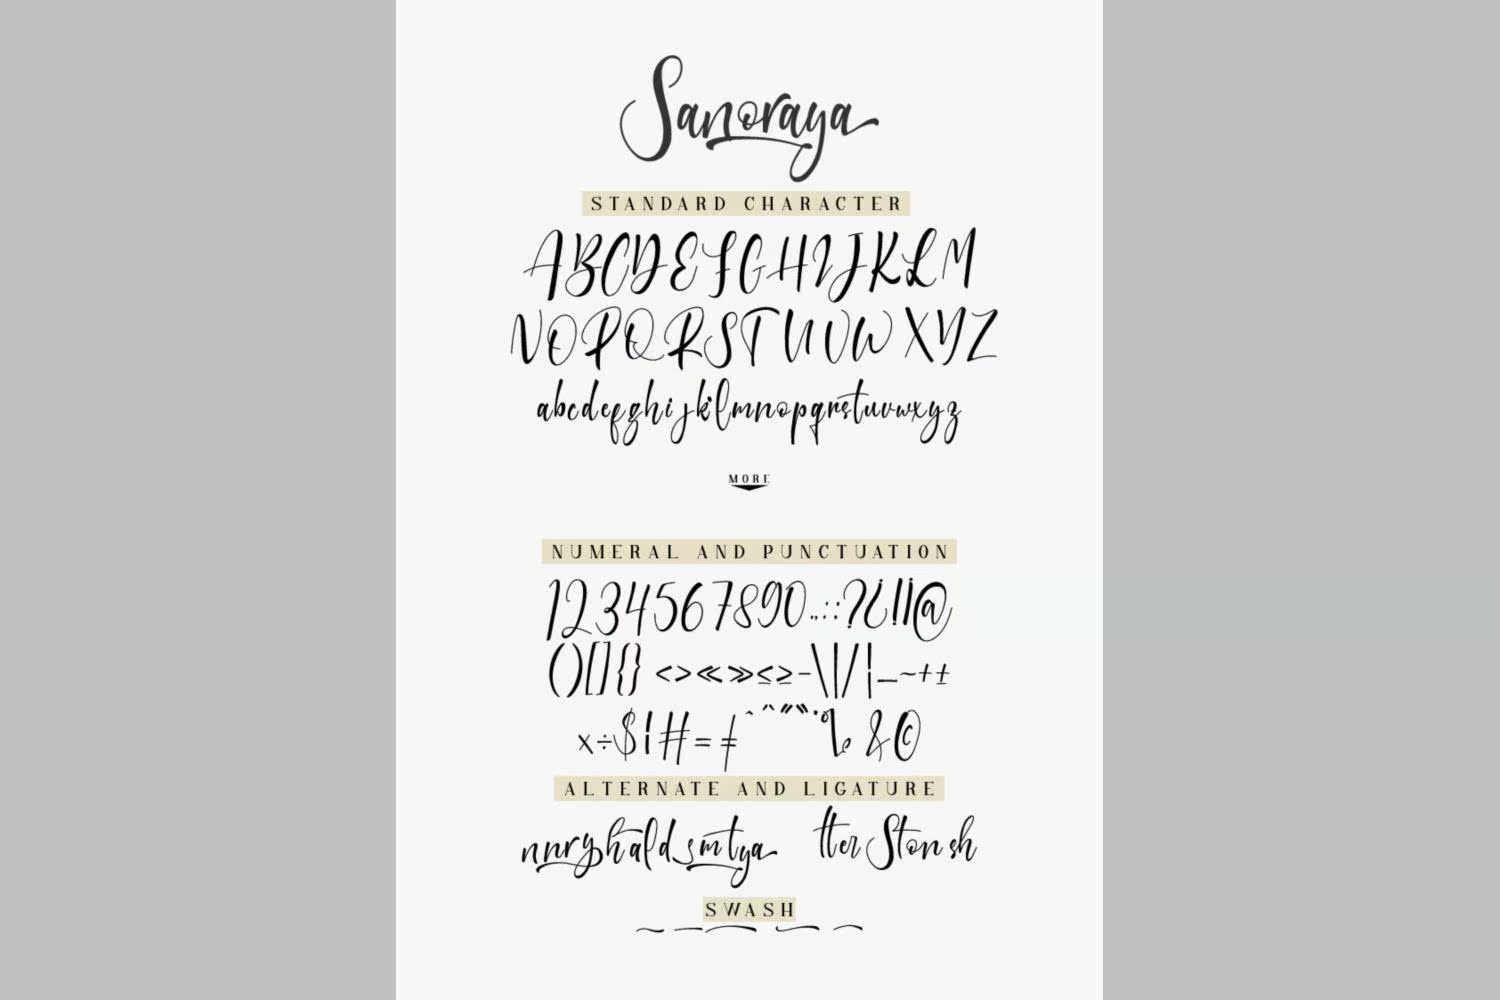 Sanoraya
STANDARD CHARACTER
ABCDEFGHIJKLM
NOPQRSTUVWXYZ
abcdefghijklmnopqrstuvwxyz
MORE
NUMERAL AND PUNCTUATION
1234567890.,:;?¿!¡@
()[]{}<>«»≤≥-\|/¦_~+±
x÷$¡#=≠^ˆ"“”·°% &©
ALTERNATE AND LIGATURE
nnryhaldsmtya tter Ston sh
SWASH